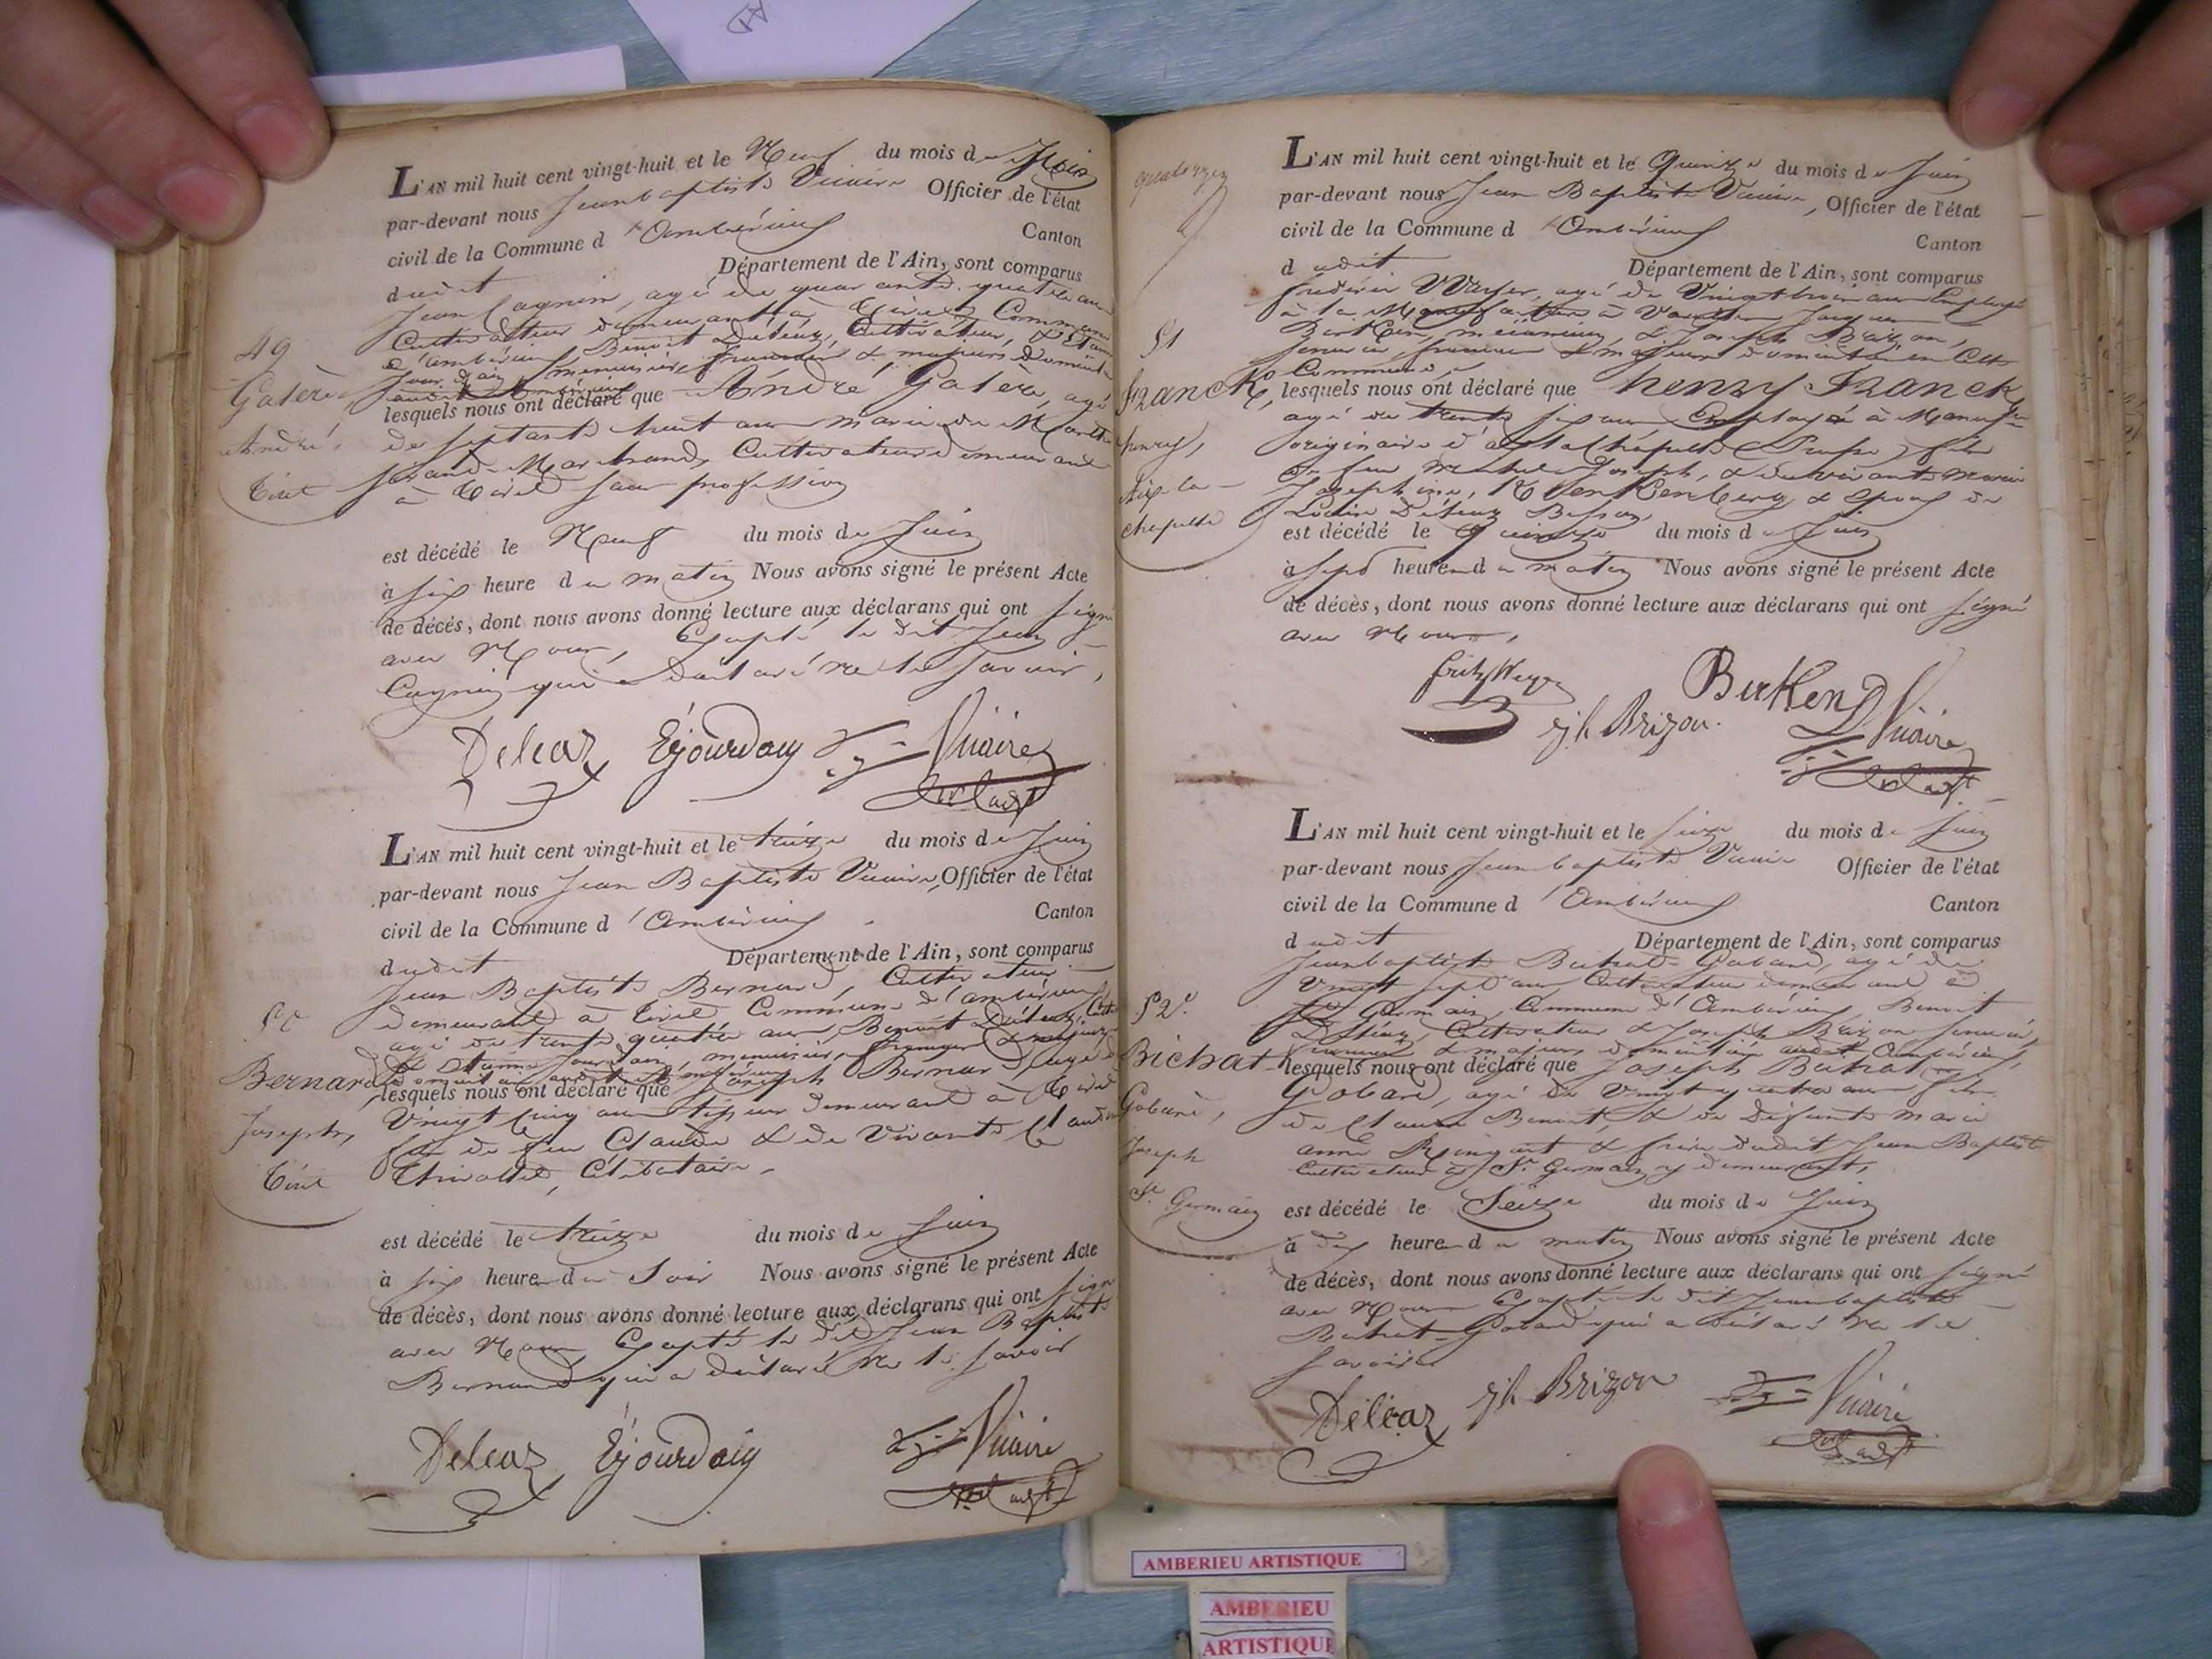 L'AN mil huit cent vingt-huit et le Neuf du mois de Juin
par-devant nous Jean baptiste Vicaire Officier de l'état
civil de la Commune d'Ambérieux Canton
dudit Département de l'Ain, sont comparus
Jean Cagnin, agé de quarante quatre ans
Cultivateur demeurant à Tiret Commune
d'ambérieux, Benoit Déléaz, Cultivateur, & Etienne
Jourdain, menuisier, français & majeurs domiciliés
audit Ambérieux
49
Galère
André,
Tiret
lesquels nous ont déclaré que André Galère, agé
de septante huit ans marie de
Marchand, Cultivateur demeurant
à Tiret sans profession
est décédé le Neuf du mois de Juin
à six heure du matin Nous avons signé le présent Acte
de décès, dont nous avons donné lecture aux déclarans qui ont signé
avec Nous, Excepté le dit Jean
Cagnin qui a déclaré ne le savoir,
Deleaz Ejourdain Vicaire
L'AN mil huit cent vingt-huit et le treize du mois de Juin
par-devant nous Jean Baptiste Vicaire, Officier de l'état
civil de la Commune d'Ambérieux Canton
dudit Département de l'Ain, sont comparus
Jean Baptiste Bernard, Cultivateur
demeurant à Tiret Commune d'ambérieux
agé de trente quatre ans, Benoit Déléaz,
& Etienne Jourdain, menuisier, français & majeurs
50
Bernard
Joseph,
Tiret
lesquels nous ont déclaré que Joseph Bernard, agé de
Vingt Cinq ans tisseur demeurant à Tiret
fils de feu Claude & de Vivante
Thivollet, Célibataire.
est décédé le treize du mois de Juin
à six heure du Soir Nous avons signé le présent Acte
de décès, dont nous avons donné lecture aux déclarans qui ont signé
avec Nous Excepté le dit Jean Baptiste
Bernard qui a déclaré ne le savoir
Deleaz Ejourdain Vicaire
quatorze
L'AN mil huit cent vingt-huit et le Quinze du mois de Juin
par-devant nous Jean Baptiste Vicaire, Officier de l'état
civil de la Commune d'Ambérieux Canton
dudit Département de l'Ain, sont comparus
frederic Weyer, agé de Vingt trois ans Employé
à la Manufacture
mécanicien, & Joseph Brizon,
français & majeurs domiciliés en Cette
Commune
51
Franck,
henry,
Aix-la-
chapelle
lesquels nous ont déclaré que henry Franck
agé de trente six ans Employé à Manuf
originaire d'aixlachapelle (Prusse) fils
de feu Joseph, & de vivante Marie
Josephine, & Epoux de
Louise
est décédé le quinze du mois de Juin
à sept heure du matin Nous avons signé le présent Acte
de décès, dont nous avons donné lecture aux déclarans qui ont signé
avec Nous,
fritz Weyer Birkken
jh Brizon. Vicaire
L'AN mil huit cent vingt-huit et le seize du mois de Juin
par-devant nous Jean baptiste Vicaire Officier de l'état
civil de la Commune d'Ambérieux Canton
dudit Département de l'Ain, sont comparus
Jean baptiste Bichat-Gobard, agé de
Vingt sept ans Cultivateur demeurant à
St Germain, Commune d'Ambérieux, Benoit
Déléaz, Cultivateur & Joseph Brizon
français & majeurs domiciliés audit Ambérieux,
52.
Bichat-
Gobard,
Joseph
St Germain
lesquels nous ont déclaré que Joseph Bichat
Gobard, agé de Vingt quatre ans fils
de Claude Benoit, & de Défunte Marie
anne & frère dudit Jean Baptiste
Cultivateur à St Germain y demeurant,
est décédé le Seize du mois de Juin
à dix heure du matin Nous avons signé le présent Acte
de décès, dont nous avons donné lecture aux déclarans qui ont signé
avec Nous Excepté le dit Jean baptiste
Bichat-Gobard qui a déclaré ne le
savoir
Deleaz jh Brizon Vicaire
AMBERIEU ARTISTIQUE
AMBERIEU
ARTISTIQUE